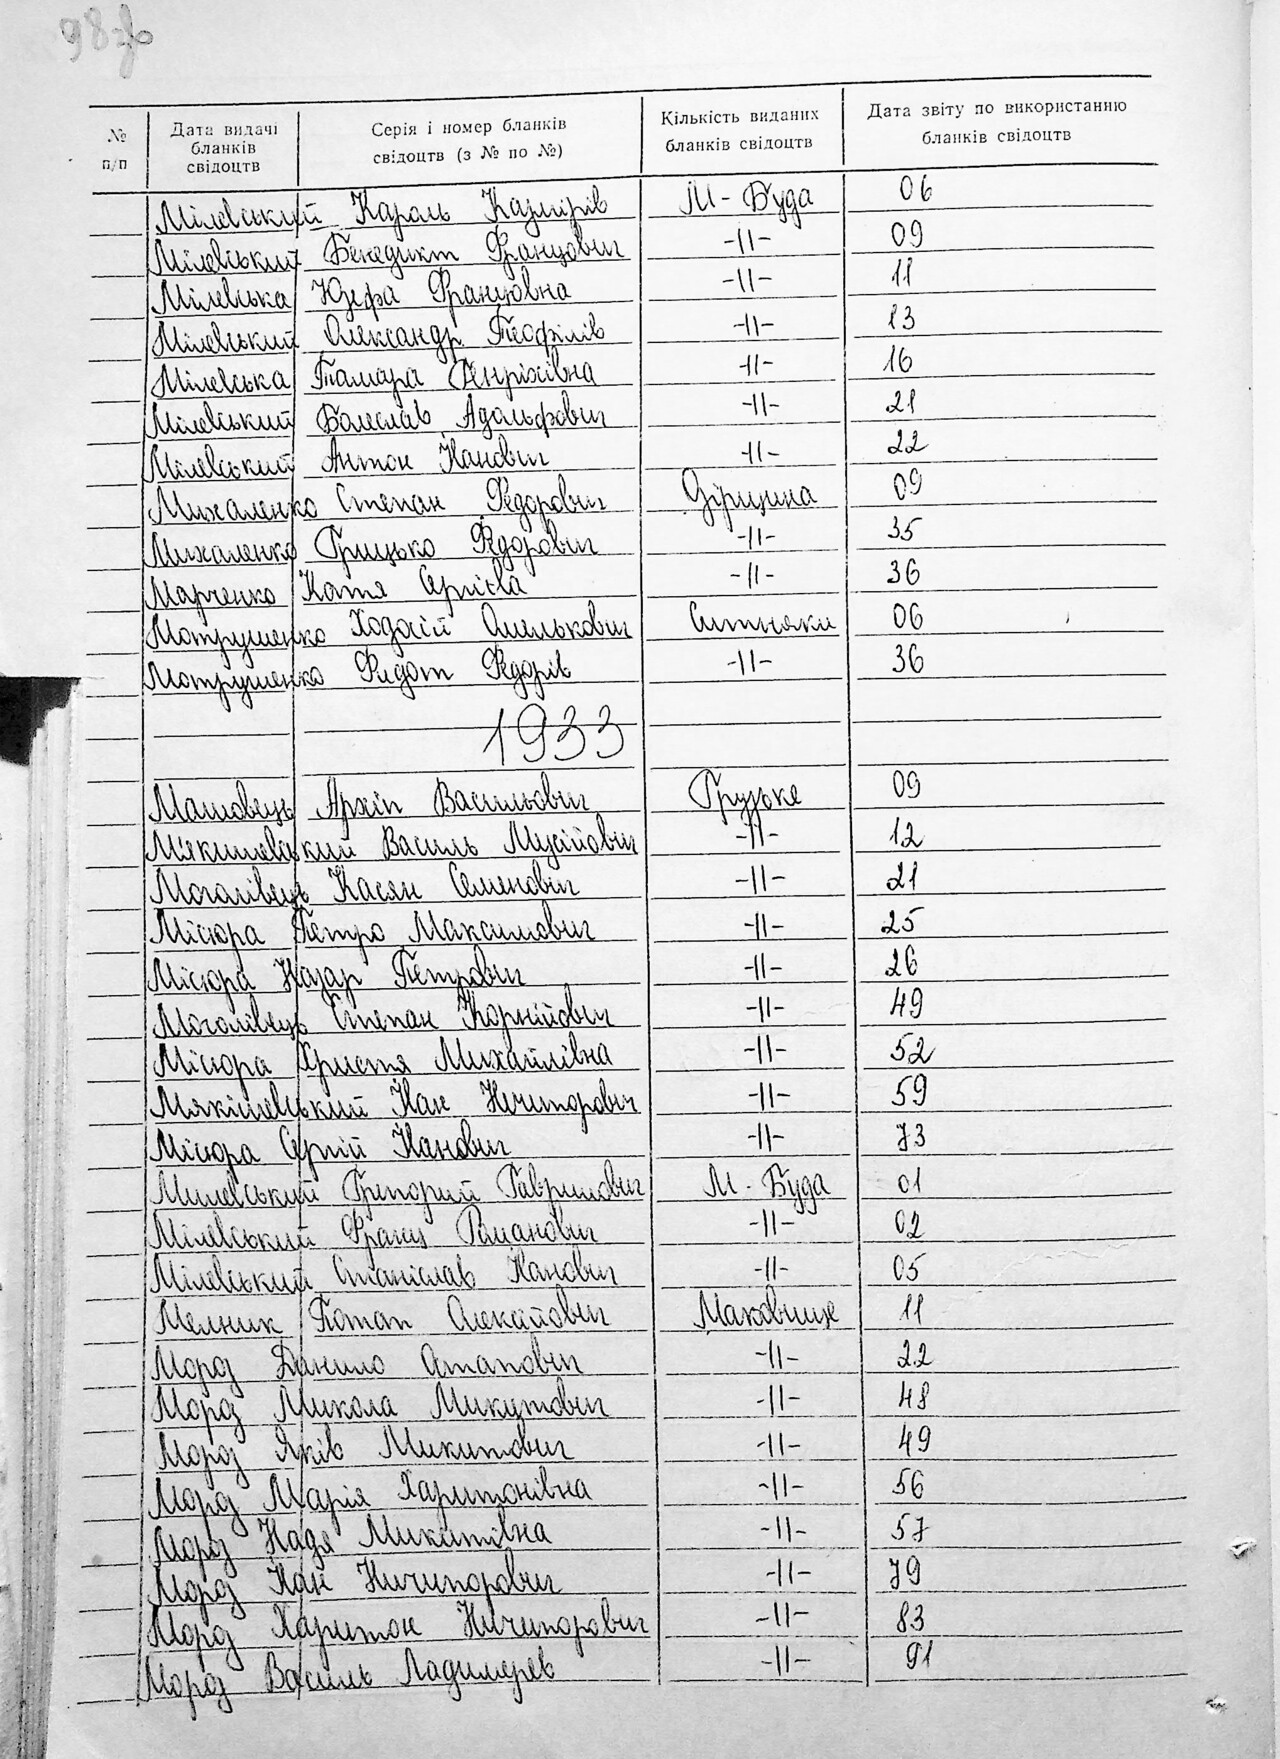 98зв
№ п/п | Дата видачі бланків свідоцтв | Серія і номер бланків свідоцтв (з № по №) | Кількість виданих бланків свідоцтв | Дата звіту по використанню бланків свідоцтв
Мілевський Кароль Казмірів М-Буда 06
Мілевський Бенедикт Францович -//- 09
Мілевська Юзефа Францовна -//- 11
Мілевський Олександр Теофілів -//- 13
Мілевська Тамара Генріхівна -//- 16
Мілевський Болеслав Адольфович -//- 21
Мілевський Антон Іванович -//- 22
Михаленко Степан Федорович Дірщина 09
Михаленко Грицько Федорович -//- 35
Марченко Катя Сергієва -//- 36
Мотрушенко Ходосій Омелькович Ситняки 06
Мотрушенко Федот Федорів -//- 36
1933
Машовець Архіп Васильович Грузьке 09
Мякишевський Василь Мусійович -//- 12
Моголівець Касян Семенович -//- 21
Місюра Петро Максимович -//- 25
Місюра Назар Петрович -//- 26
Моголівець Степан Корнійович -//- 49
Місюра Христя Михайлівна -//- 52
Мякішевський Іван Ничипорович -//- 59
Місюра Сергій Іванович -//- 73
Милевський Григорий Гаврилович М-Буда 01
Мілевський Франц Романович -//- 02
Мілевський Станіслав Іванович -//- 05
Мельник Потап Олексійович Маковище 11
Мороз Данило Остапович -//- 22
Мороз Микола Микитович -//- 48
Мороз Яків Микитович -//- 49
Мороз Марія Харитонівна -//- 56
Мороз Надя Микитівна -//- 57
Мороз Іван Ничипорович -//- 79
Мороз Харитон Ничипорович -//- 83
Мороз Василь Ладимерев -//- 91